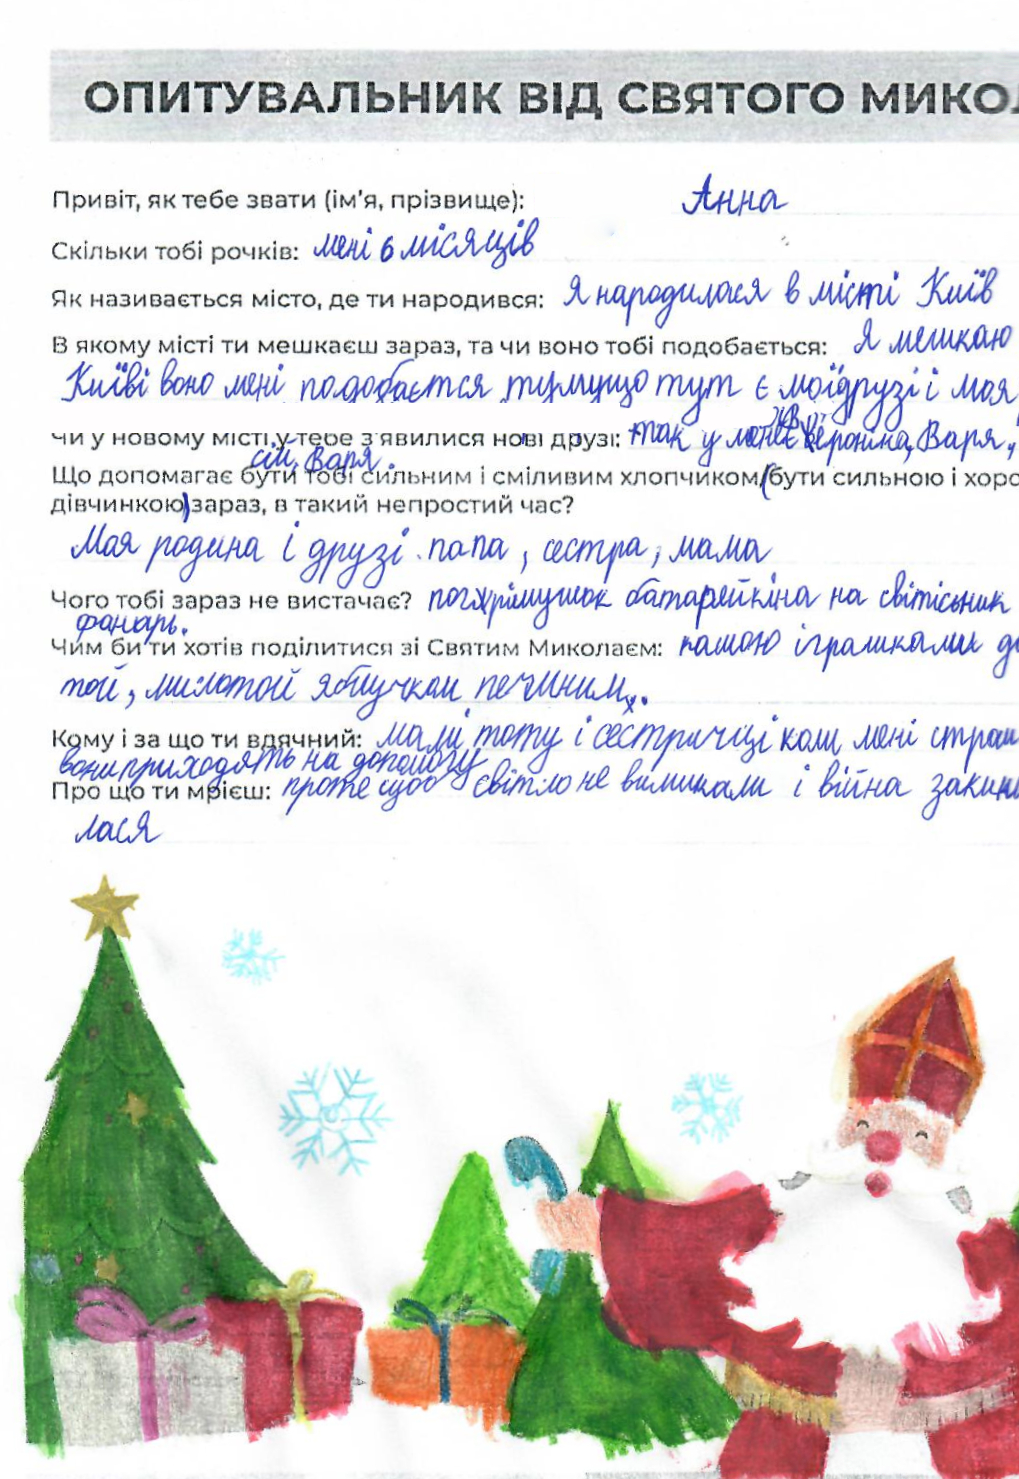 ОПИТУВАЛЬНИК ВІД СВЯТОГО МИКОЛ
Привіт, як тебе звати (ім'я, прізвище): Анна
Скільки тобі рочків: мені 6 місяців
Як називається місто, де ти народився: Я народилася в місті Київ
В якому місті ти мешкаєш зараз, та чи воно тобі подобається: Я мешкаю
Київі воно мені подобається тумущо тут є мої друзі і моя
Чи у новому місті у тебе з'явилися нові друзі: так у мене є Вероніка, Варя,
сій, Варя.
Що допомагає бути тобі сильним і сміливим хлопчиком/(бути сильною і хоро
дівчинкою) зараз, в такий непростий час?
Моя родина і друзі. папа, сестра, мама
Чого тобі зараз не вистачає? на світісьник
фонарь.
Чим би ти хотів поділитися зі Святим Миколаєм: іграшками
той, яблучкам печиним.
Кому і за що ти вдячний: мамі тату і сестричці коли мені страш
вони приходять на допомогу
Про що ти мрієш: проте щоб світло не вимикали і війна закин
лася